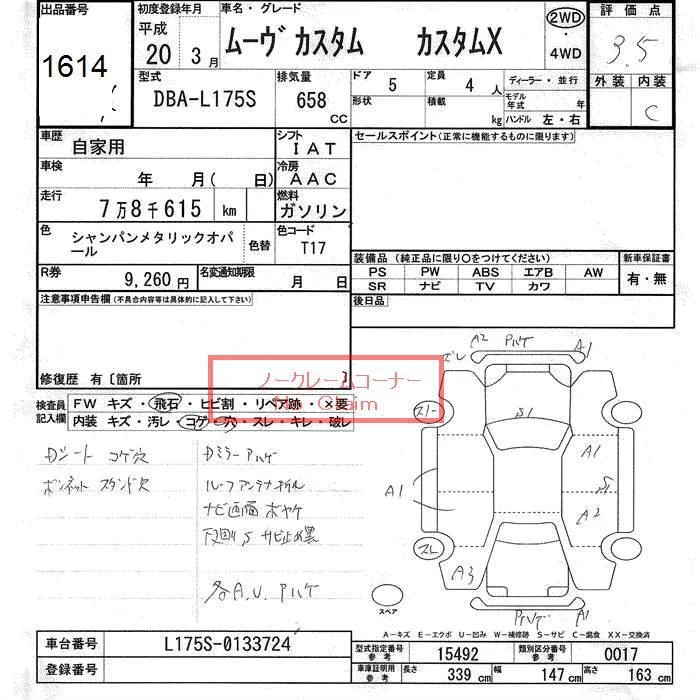 出品番号
1614
初度登録年月
平成
20 3月
車名・グレード
ムーヴ カスタム カスタムX
2WD
・
4WD
評価点
3.5
外装 内装
C
型式
DBA-L175S
排気量
658
CC
ドア
5
定員
4人
形状
積載
kg
ディーラー・並行
モデル年式 年
ハンドル 左・右
車歴
自家用
シフト
IAT
セールスポイント(正常に機能するものに限ります)
車検
年 月( 日)
冷房
AAC
走行
7万8千615 km
燃料
ガソリン
色
シャンパンメタリックオパール
色替
色コード
T17
装備品(純正品に限り○をつけてください)
PS PW ABS エアB AW
SR ナビ TV カワ
新車保証書
有・無
R券
9,260円
名変通知期限
月 日
後日品
注意事項申告欄(不具合内容等は具体的に記入して下さい)
修復歴 有〔箇所 〕
ノークレームコーナー
No Claim
検査員記入欄
FW キズ・飛石・ヒビ割・リペア跡・×要
内装 キズ・汚レ・コゲ・穴・スレ・キレ・破レ
Dシート コゲ穴
ボンネット スタンド穴
Dミラー A ハゲ
ルーフアンテナ
ナビ画面 ボヤケ
下回り S サビ止め黒
各A.U. Aハゲ
ズレ A2 A1
スレ
S1
A1
A1
S1
A2
スレ
A3
A1
スペア
A-キズ E-エクボ U-凹み W-補修跡 S-サビ C-腐食 XX-交換済
車台番号
L175S-0133724
登録番号
型式指定番号
参考
15492
類別区分番号
参考
0017
車庫証明用
参考
長さ 339 cm 幅 147 cm 高さ 163 cm